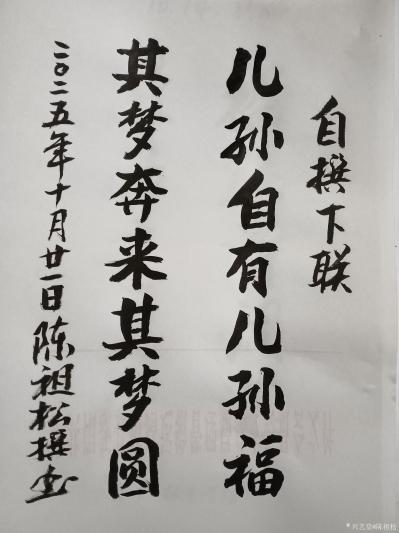 自撰下联
儿孙自有儿孙福
其梦奔来其梦圆
二〇二五年十月廿一日陈祖松撰书